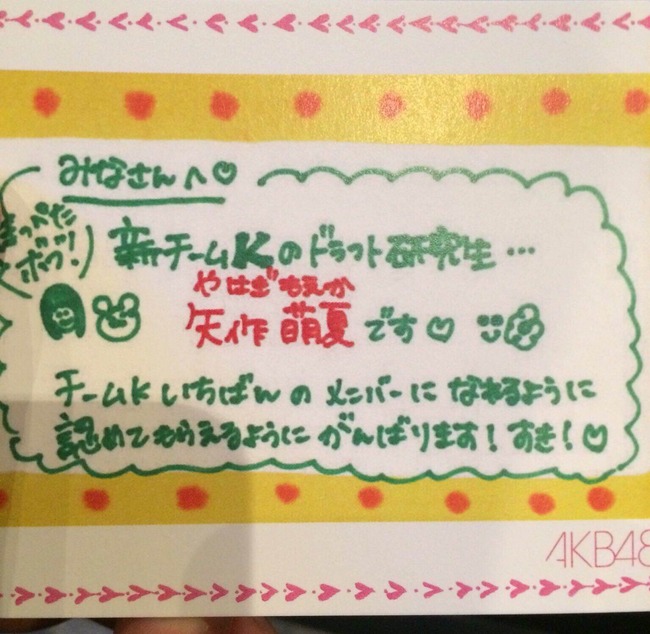 みなさんへ♡
まっかだ
ボク!
新チームKのドラフト研究生…
やはぎもえか
矢作萌夏です♡
チームKいちばんのメンバーになれるように
認めてもらえるようにがんばります！すき！♡
AKB48